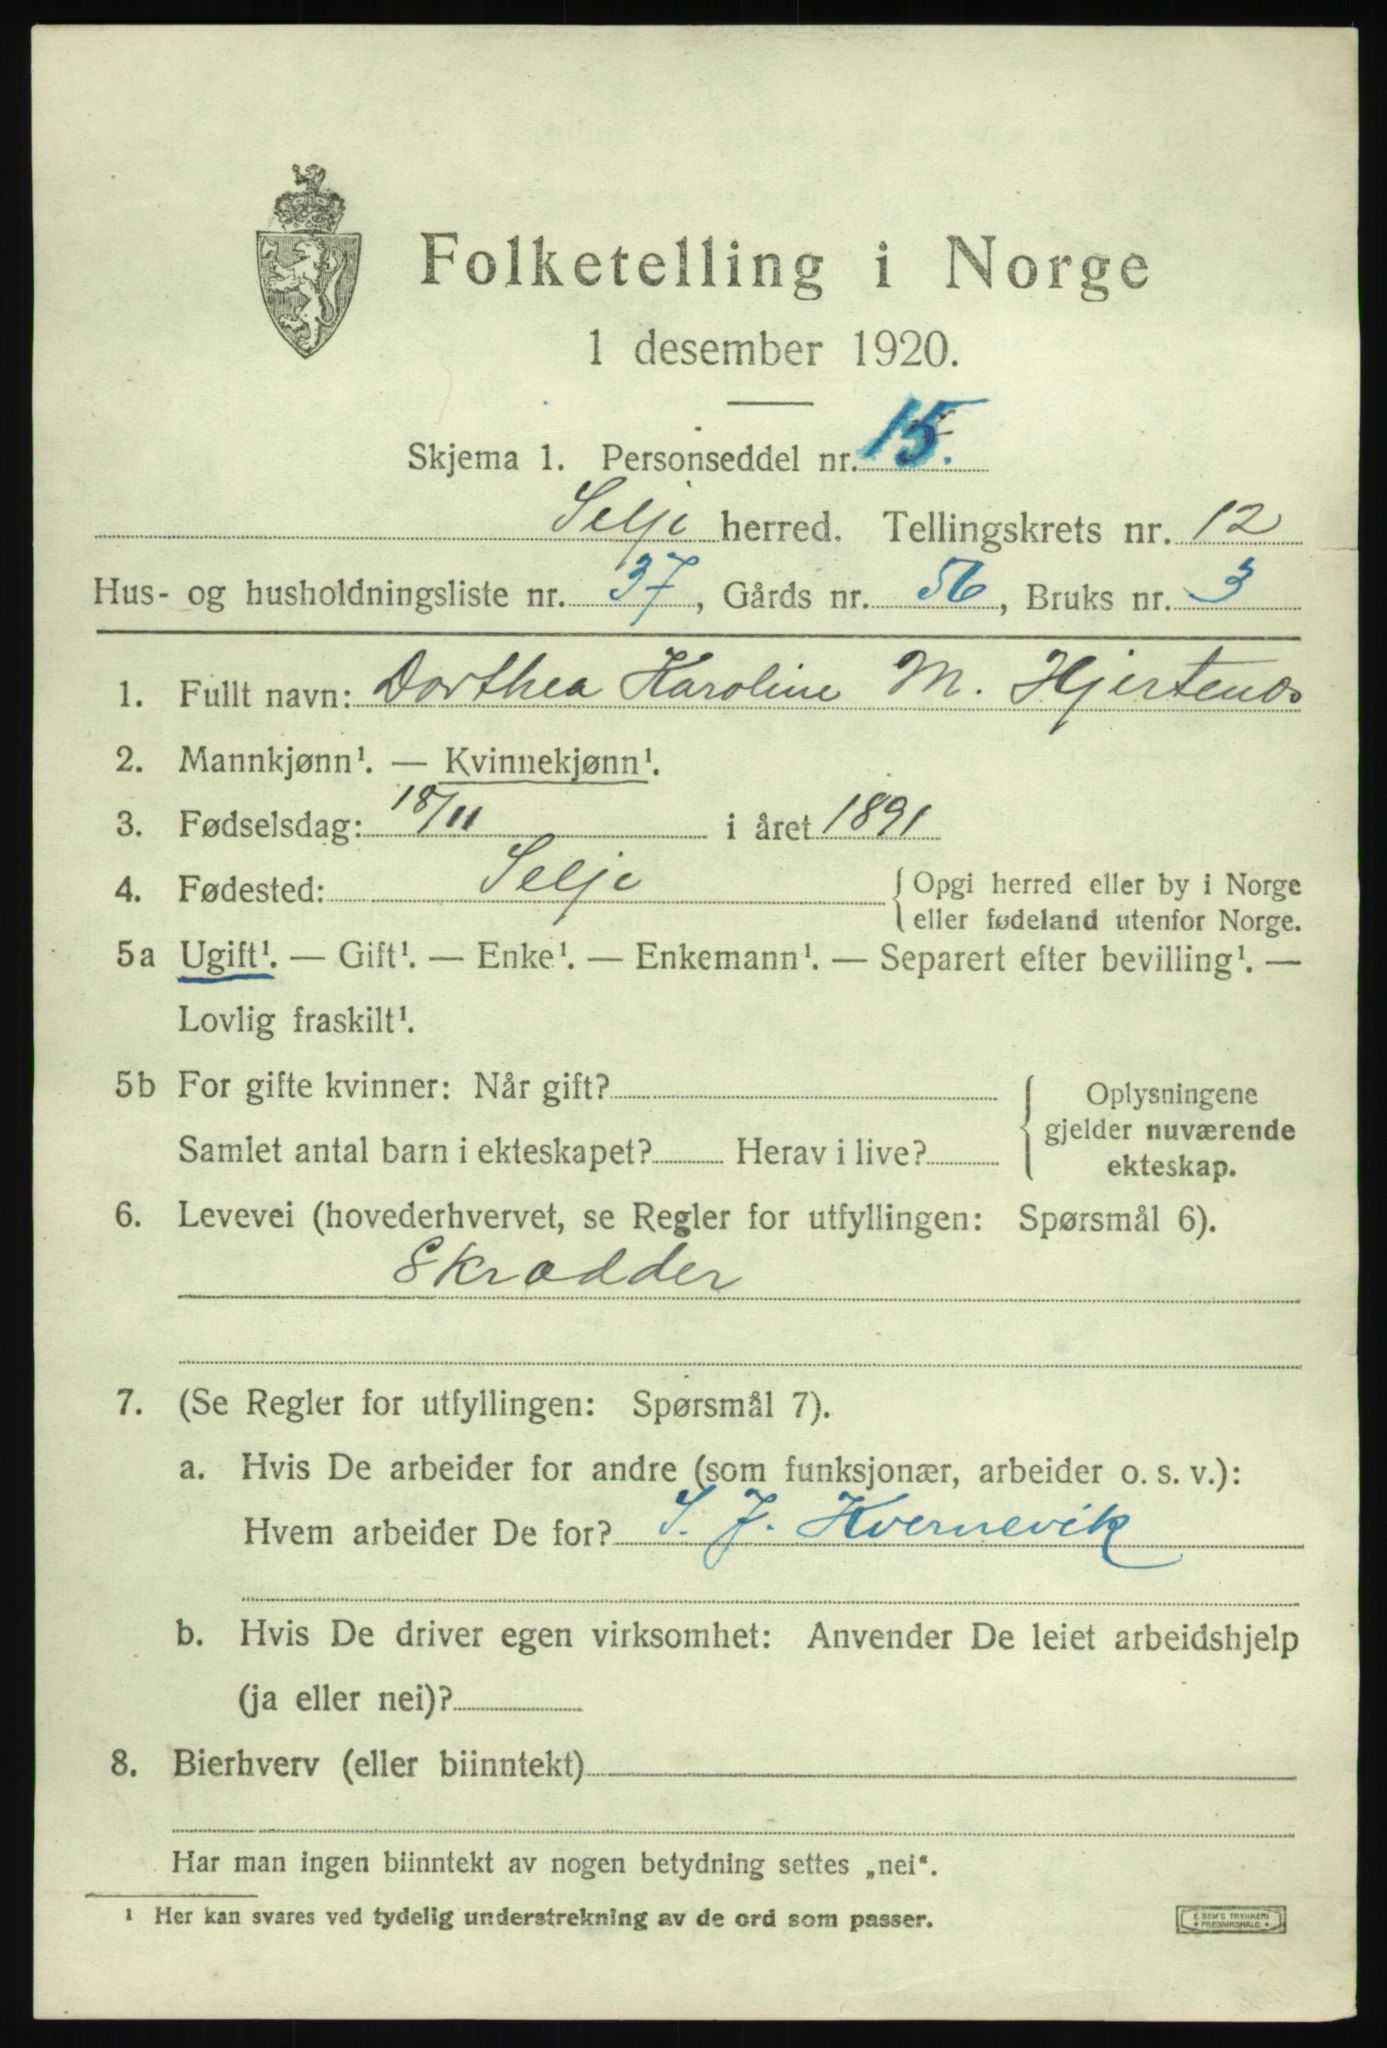 Folketelling i Norge
1 desember 1920.
Skjema 1. Personseddel nr. 15.
Selje herred. Tellingskrets nr. 12
Hus- og husholdningsliste nr. 37, Gårds nr. 56, Bruks nr. 3
1. Fullt navn: Dorthea Karoline M. Hjertenæs
2. Mannkjønn¹. — Kvinnekjønn¹.
3. Fødselsdag: 18/11 i året 1891
4. Fødested: Selje { Opgi herred eller by i Norge
eller fødeland utenfor Norge.
5a Ugift¹. — Gift¹. — Enke¹. — Enkemann¹. — Separert efter bevilling¹. —
Lovlig fraskilt¹.
5b For gifte kvinner: Når gift? { Oplysningene
gjelder nuværende
Samlet antal barn i ekteskapet? Herav i live? ekteskap.
6. Levevei (hovederhvervet, se Regler for utfyllingen: Spørsmål 6).
Skrædder
7. (Se Regler for utfyllingen: Spørsmål 7).
a. Hvis De arbeider for andre (som funksjonær, arbeider o. s. v.):
Hvem arbeider De for? S. J. Kvernevik
b. Hvis De driver egen virksomhet: Anvender De leiet arbeidshjelp
(ja eller nei)?
8. Bierhverv (eller biinntekt)
Har man ingen biinntekt av nogen betydning settes „nei“.
¹ Her kan svares ved tydelig understrekning av de ord som passer.
E SEM'S TRYKKERI
FREDRIKSHALD